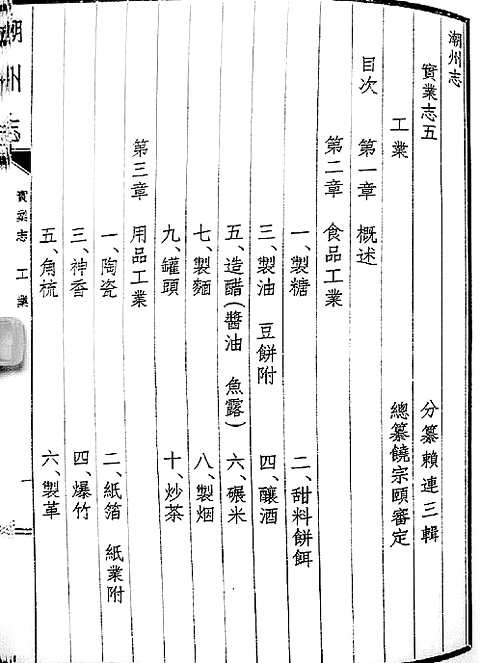 潮州志
實業志五　分纂賴連三輯
工業　總纂饒宗頤審定
目次　第一章　概述
第二章　食品工業
一、製糖　二、甜料餅餌
三、製油　豆餅附　四、釀酒
五、造醋(醬油　魚露)　六、碾米
七、製麵　八、製烟
九、罐頭　十、炒茶
第三章　用品工業
一、陶瓷　二、紙箔　紙業附
三、神香　四、爆竹
五、角梳　六、製革
潮州志
實業志　工業
一